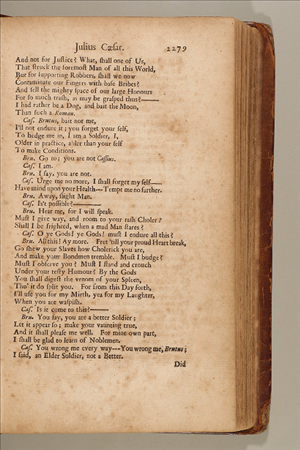 Julius Cæsar. 2279
And not for Justice? What, shall one of Us,
That struck the foremost Man of all this World,
But for supporting Robbers, shall we now
Contaminate our Fingers with base Bribes?
And sell the mighty space of our large Honours
For so much trash, as may be grasped thus?——
I had rather be a Dog, and bait the Moon,
Than such a Roman.
Cas. Brutus, bait not me,
I'll not endure it; you forget your self,
To hedge me in, I am a Soldier, I,
Older in practice, abler than your self
To make Conditions.
Bru. Go to; you are not Cassius.
Cas. I am.
Bru. I say, you are not.
Cas. Urge me no more, I shall forget my self——
Have mind upon your Health—Tempt me no farther.
Bru. Away, slight Man.
Cas. Is't possible?————
Bru. Hear me, for I will speak.
Must I give way, and room to your rash Choler?
Shall I be frighted, when a mad Man stares?
Cas. O ye Gods! ye Gods! must I endure all this?
Bru. All this! Ay more. Fret 'till your proud Heart break,
Go shew your Slaves how Cholerick you are,
And make your Bondmen tremble. Must I budge?
Must I observe you? Must I stand and crouch
Under your testy Humour? By the Gods
You shall digest the venom of your Spleen,
Tho' it do split you. For from this Day forth,
I'll use you for my Mirth, yea for my Laughter,
When you are waspish.
Cas. Is it come to this?———
Bru. You say, you are a better Soldier;
Let it appear so; make your vaunting true,
And it shall please me well. For mine own part,
I shall be glad to learn of Noblemen.
Cas. You wrong me every way---You wrong me, Brutus;
I said, an Elder Soldier, not a Better.
Did